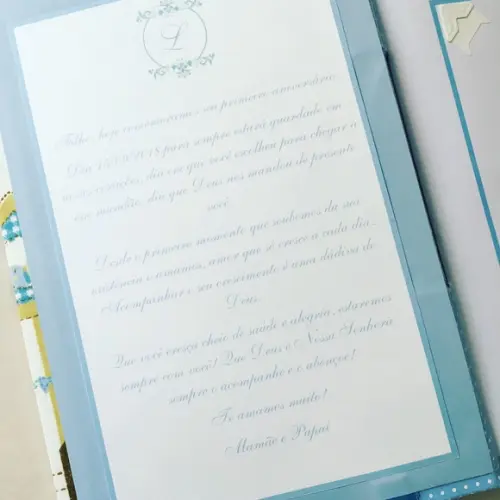 L
Filho, hoje comemoramos o seu primeiro aniversário.
Dia 18/09/2018 para sempre estará guardado em
nossos corações, dia em que você escolheu para chegar a
esse mundão, dia que Deus nos mandou de presente
você.
Desde o primeiro momento que soubemos da sua
existência o amamos, amor que só cresce a cada dia.
Acompanhar o seu crescimento é uma dádiva de
Deus.
Que você cresça cheio de saúde e alegria, estaremos
sempre com você! Que Deus e Nossa Senhora
sempre o acompanhe e o abençoe!
Te amamos muito!
Mamãe e Papai